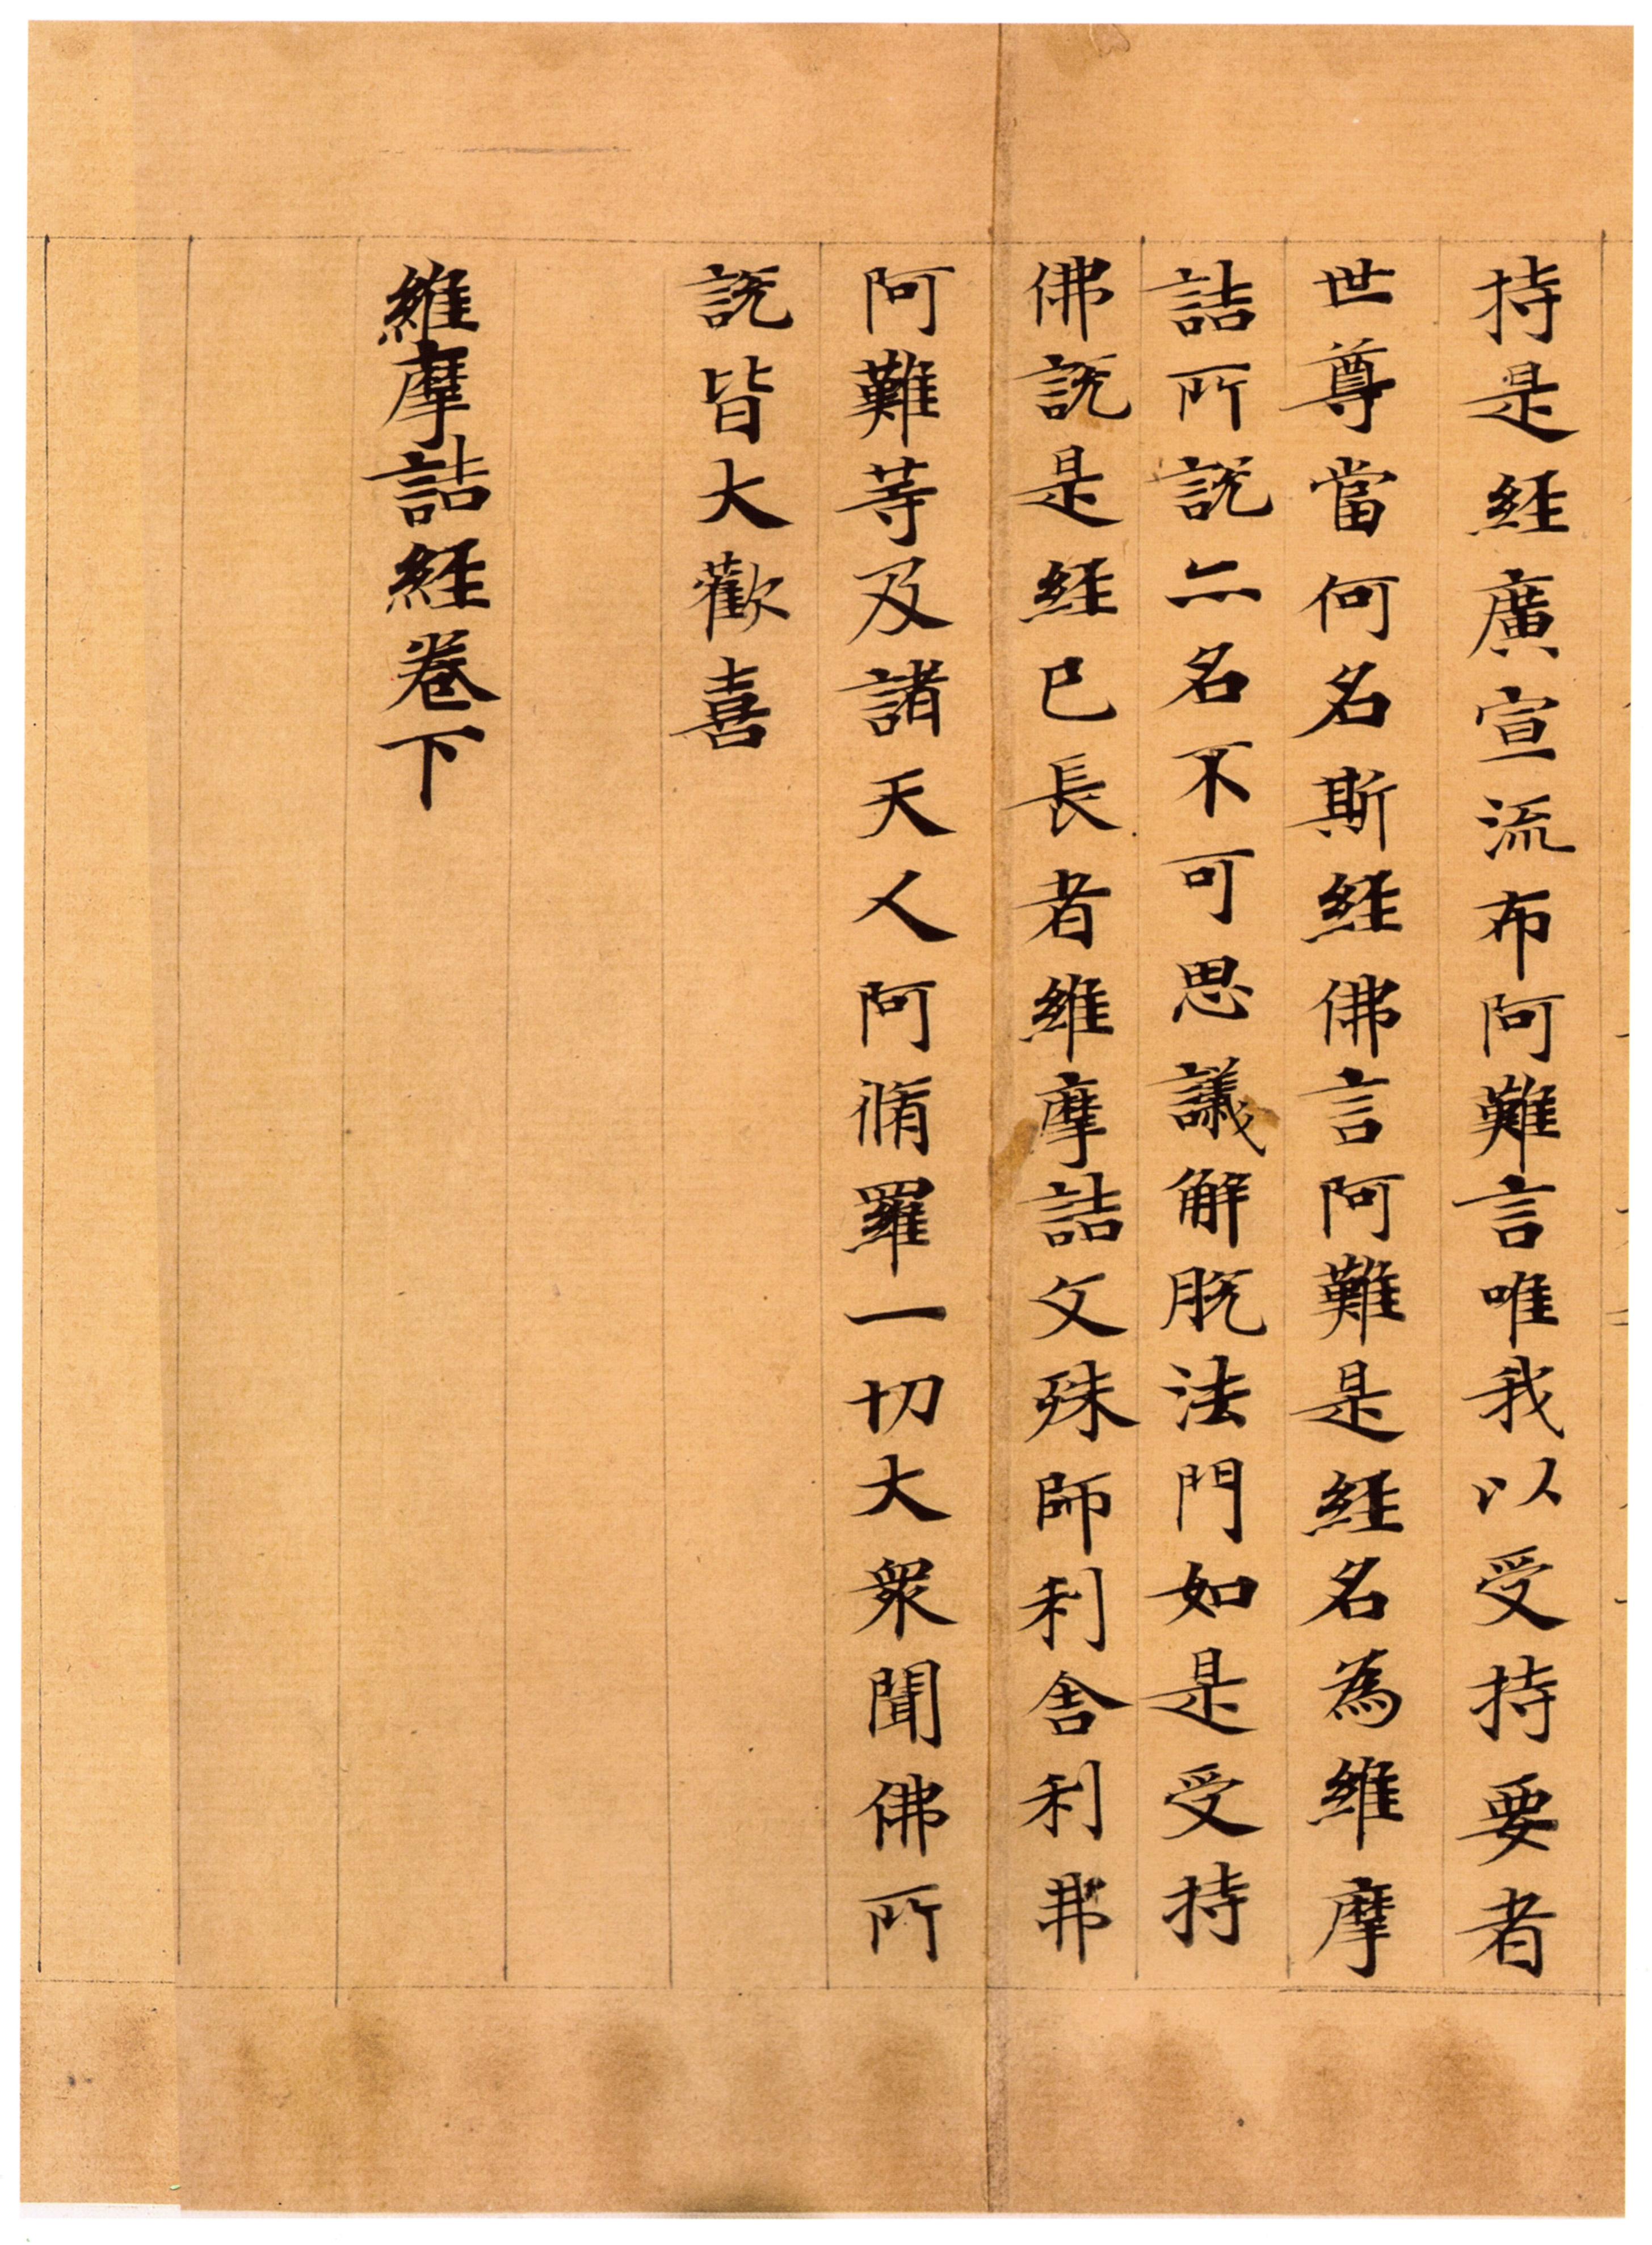 持是經廣宣流布阿難言唯我以受持要者
世尊當何名斯經佛言阿難是經名為維摩
詰所說二名不可思議解脫法門如是受持
佛說是經已長者維摩詰文殊師利舍利弗
阿難等及諸天人阿脩羅一切大眾聞佛所
說皆大歡喜
維摩詰經卷下